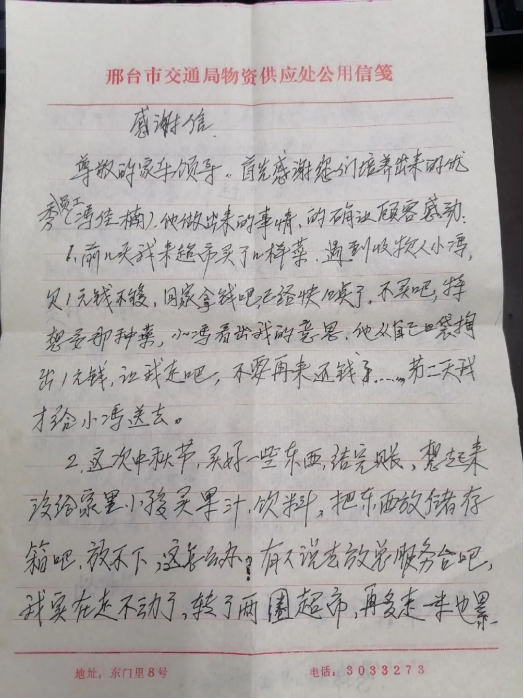 邢台市交通局物资供应处公用信笺
感谢信
尊敬的家乐领导。首先感谢您们培养出来的优
秀员工(冯佳楠)他做出来的事情,的确让顾客感动:
1.前几天我来超市买了几样菜,遇到收款人小冯,
欠1元钱不够,回家拿钱吧已经快8点了,不买吧,特
想要那种菜,小冯看出我的意思,他从自己口袋掏
出1元钱,让我走吧,不要再来还钱了……,第二天我
才给小冯送去。
2.这次中秋节,买好一些东西,结完账,想起来
没给家里小孩买果汁,饮料,把东西放储存
箱吧,放不下,这怎么办?有人说去放总服务台吧,
我实在走不动了,转了两圈超市,再多走一米也累
地址:东门里8号
电话:3033273